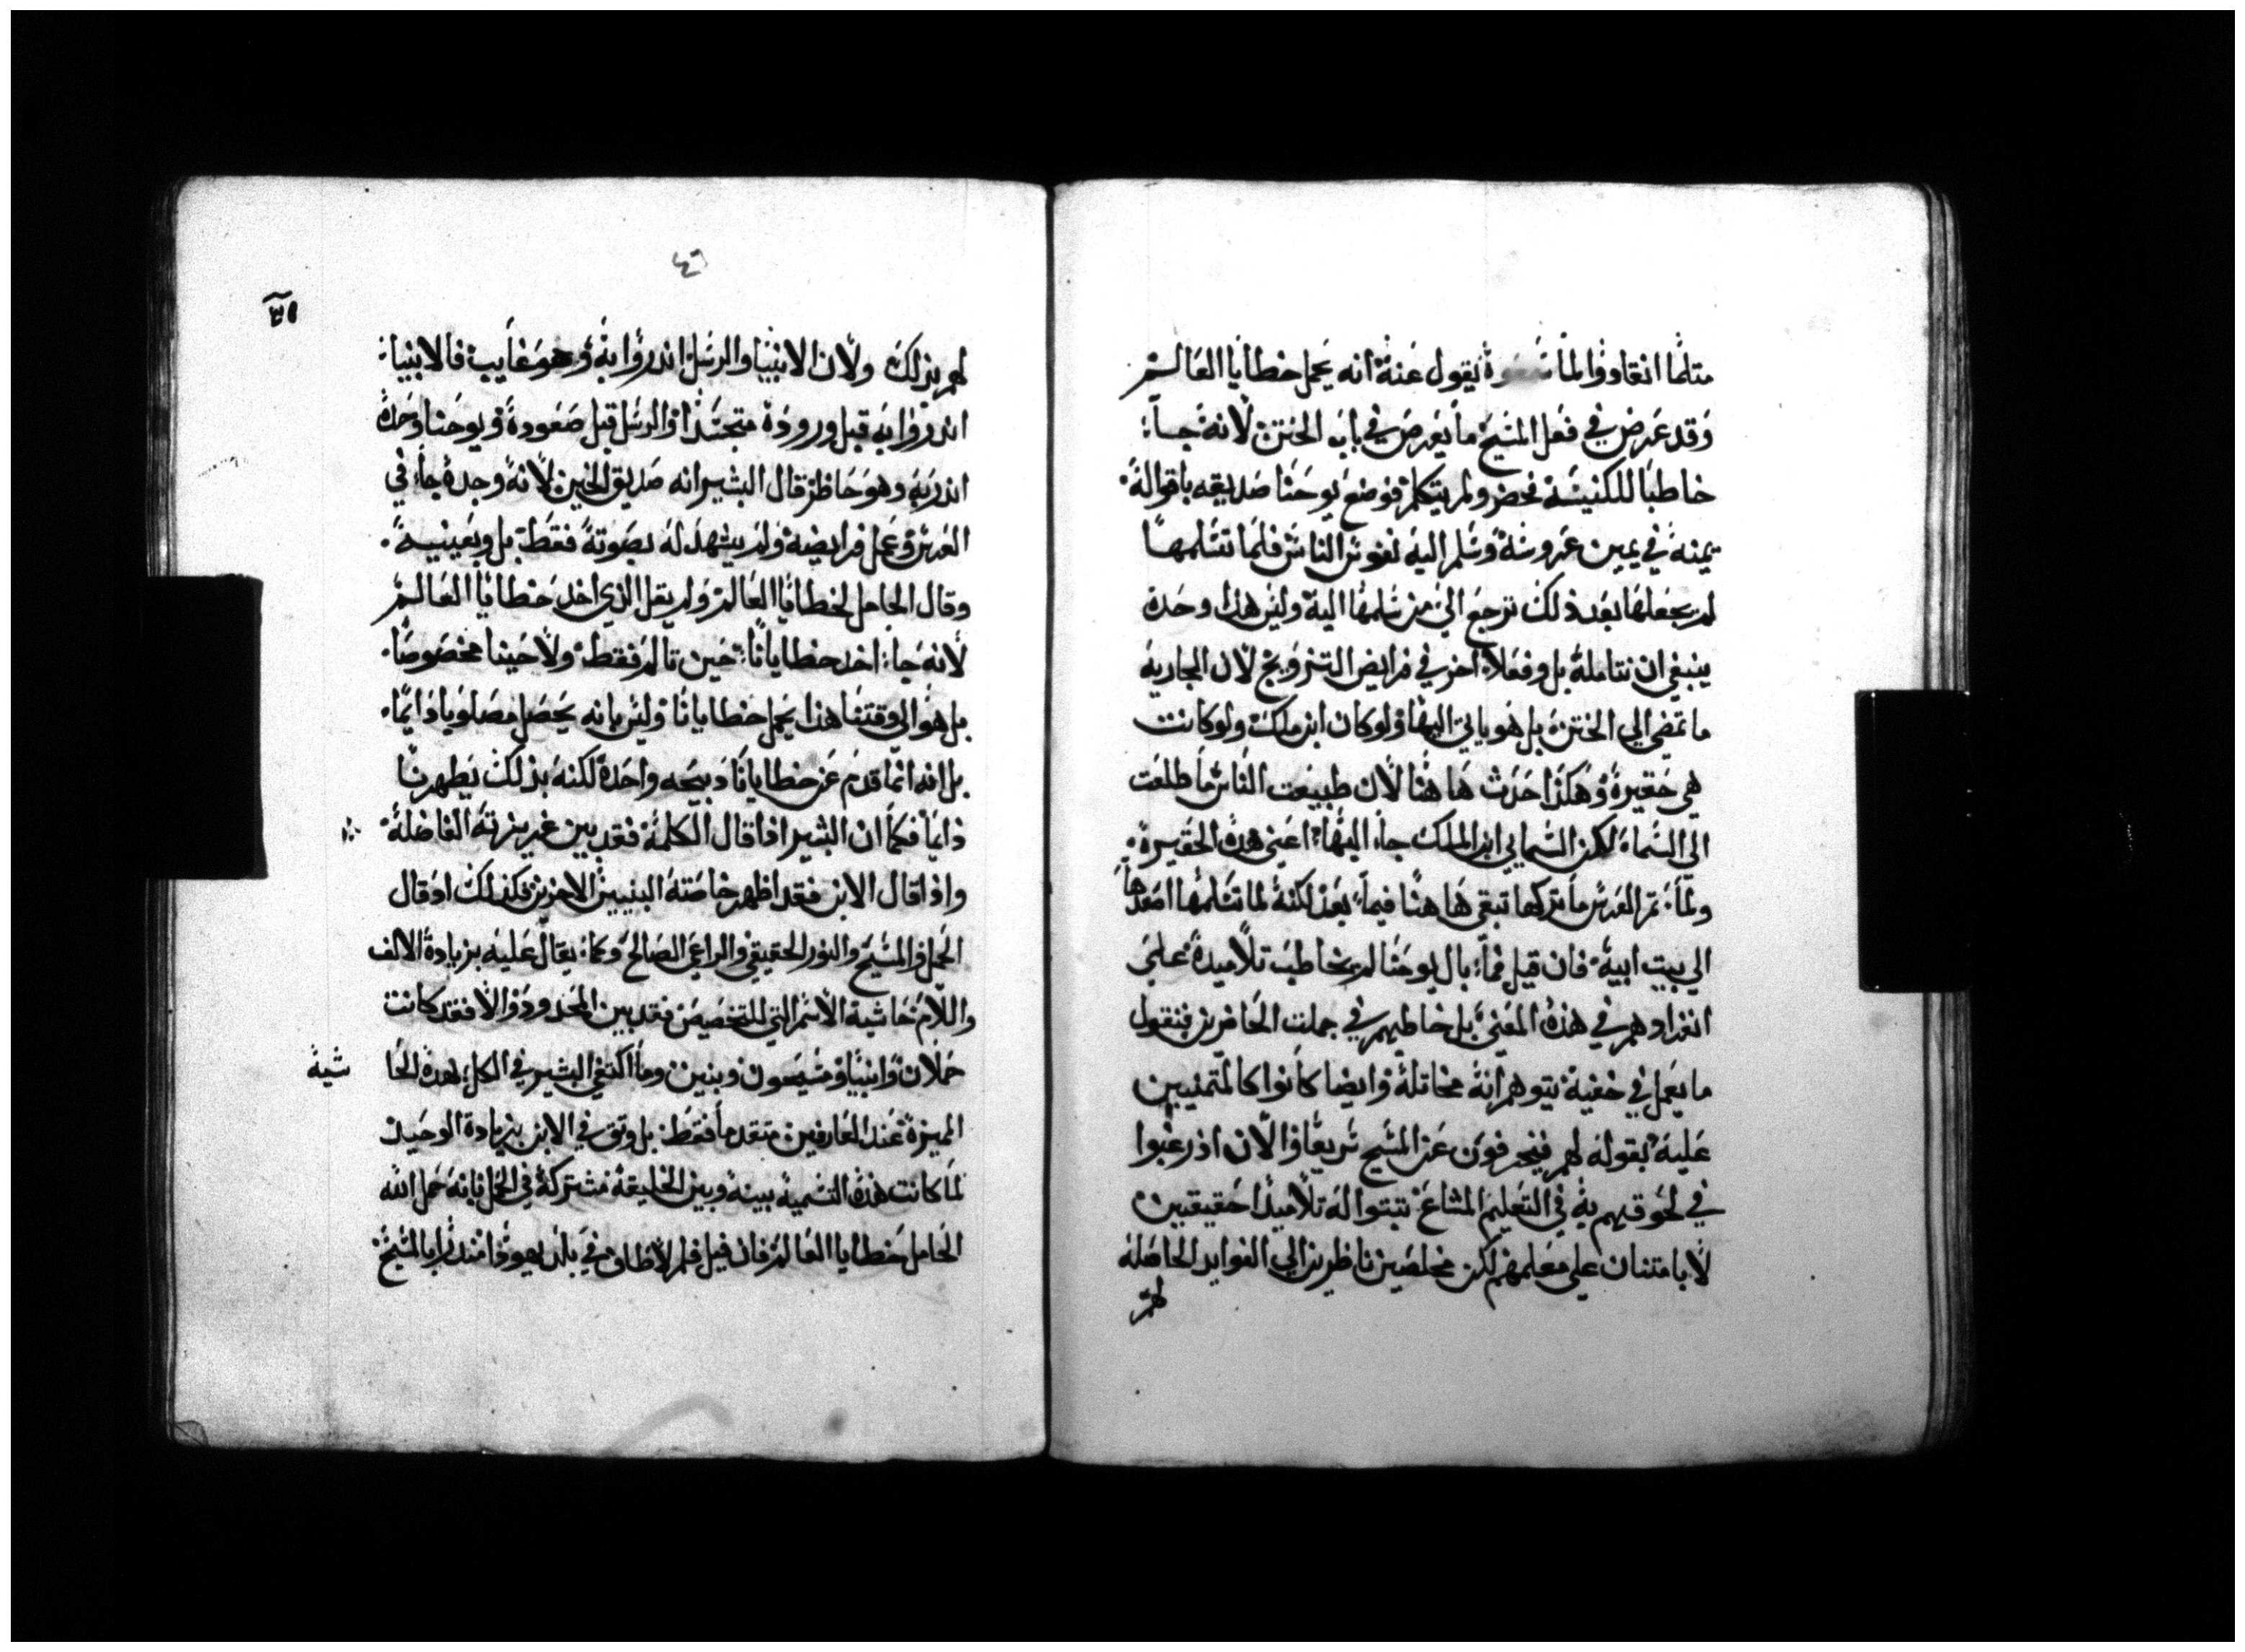 مثلما انقادوا لما سمعوة يقول عنة انه يحمل خطايا العالم
وقد عرض في فعل المسيح ما يعرض في باب الختن لانه جاء
خاطبا للكنيسة فحضر ولم يتكلم فوضع يوحنا صديقه باقواله
يمنة في يمين عروسة وسلم اليه نفوس الناس فلما تسلمها
لم يجعلها بعد ذلك ترجع الي من سلمها اليه وليس هذا وحدة
ينبغي ان نتاملة بل وفعلا اخر في فرايض التزويج لان الجاريه
ما تمضي الي الختن بل هو ياتي اليها ولو كان ابن ملك ولو كانت
هي حقيرة وهكذا حدث هاهنا لان طبيعت الناس ما طلعت
الي السماء لكن السمايي ابن الملك جاء اليها اعني هده الحقيرة
ولما تم العرس ما تركها تبقي هاهنا فيما بعد لكنة لما تسلمها اصعدها
الي بيت ابية فان قيل فما بال يوحنا لم يخاطب تلاميدة علي
انفرادهم في هذه المعني بل خاطبهم في جملت الحاضرين فنقول
ما يعمل في خفية يتوهم انة مخاتلة وايضا كانوا كالمتمنيين
علية بقوله لهم فينحرفون عن المسيح سريعا والان اذ رغبوا
في لحوقهم به في التعليم المشاع ثبتوا له تلاميدا حقيقيين
لا بامتنان علي معلمهم لكن مخلصين ناظرين الي الفوايد الحاصلة
لهم
٤٦
لهم بذلك ولان الانبيا والرسل اندروا به وهو غايب فالانبيا
اندروا به قبل ورودة متجسدا والرسل قبل صعودة ويوحنا وحدة
اندر به وهو حاظر قال البشير انه صديق الختن لانه وحده جاء في
العرس وعمل فرايضة ولم يشهد له بصوتة فقط بل وبعينيه
وقال الحامل لخطايا العالم ولم يقل الذي اخد خطايا العالم
لانه جاء اخد خطايانا حين تالم فقط ولا حينا مخصوصا
بل هو الي وقتنا هذا يحمل خطايانا وليس بانه يحصل مصلوبا دايما
بل انه انما قدم عن خطايانا دبيحه واحدة لكنه بذلك يطهرنا
دايما فكما ان البشير اذا قال الكلمة فقد بين غريزته الفاضلة
واذا قال الابن فقد اظهر خاصته البنيين الاخرين فكذلك اذ قال
الحمل والمسيح والنور الحقيقي والراعي الصالح وكما يقال عليه بزيادة الالف
واللام حاشية الاسم التي للتخصيص فقد بين المحدود والا فقد كانت
حملان وانبيا ومسيحون وبنين وما اكتفي البشير في الكل هده الحا
شية
المميزة عند العارفين متقدما فقط بل وثق في الابن بزيادة الوحيد
لما كانت هذه التسمية بينة وبين الخليقة مشتركة في الحمل بانه حمل الله
الحامل خطايا العالم فان قيل فلم لا طاف في بلد يهودا مندرا بالمسيح